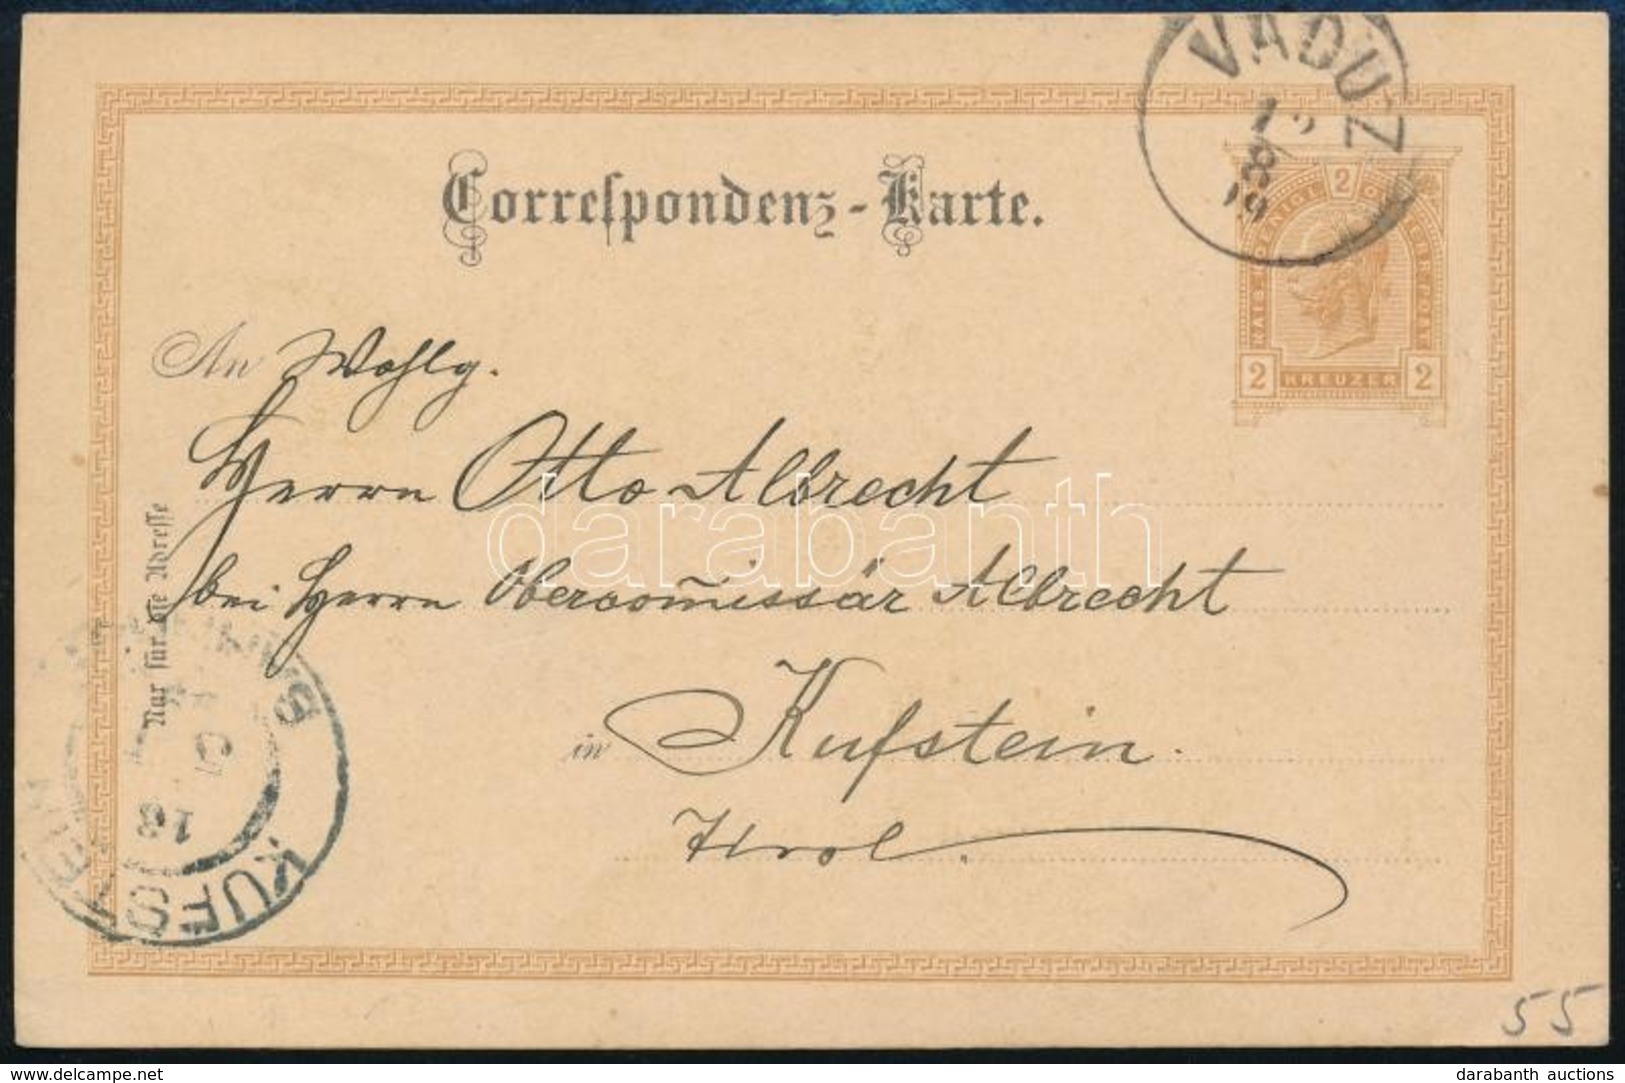 VADUZ
Correſpondenz-Karte.
2
KAIS. KOENIGL. OESTERR. POST
2 KREUZER 2
An Wohlg.
Herrn Otto Albrecht
bei Herrn Obercom̄issär Albrecht
in Kufstein.
Tirol.
Nur für die Adreſſe
KUFSTEIN
55
darabanth
delcampe.net
darabanth auctions